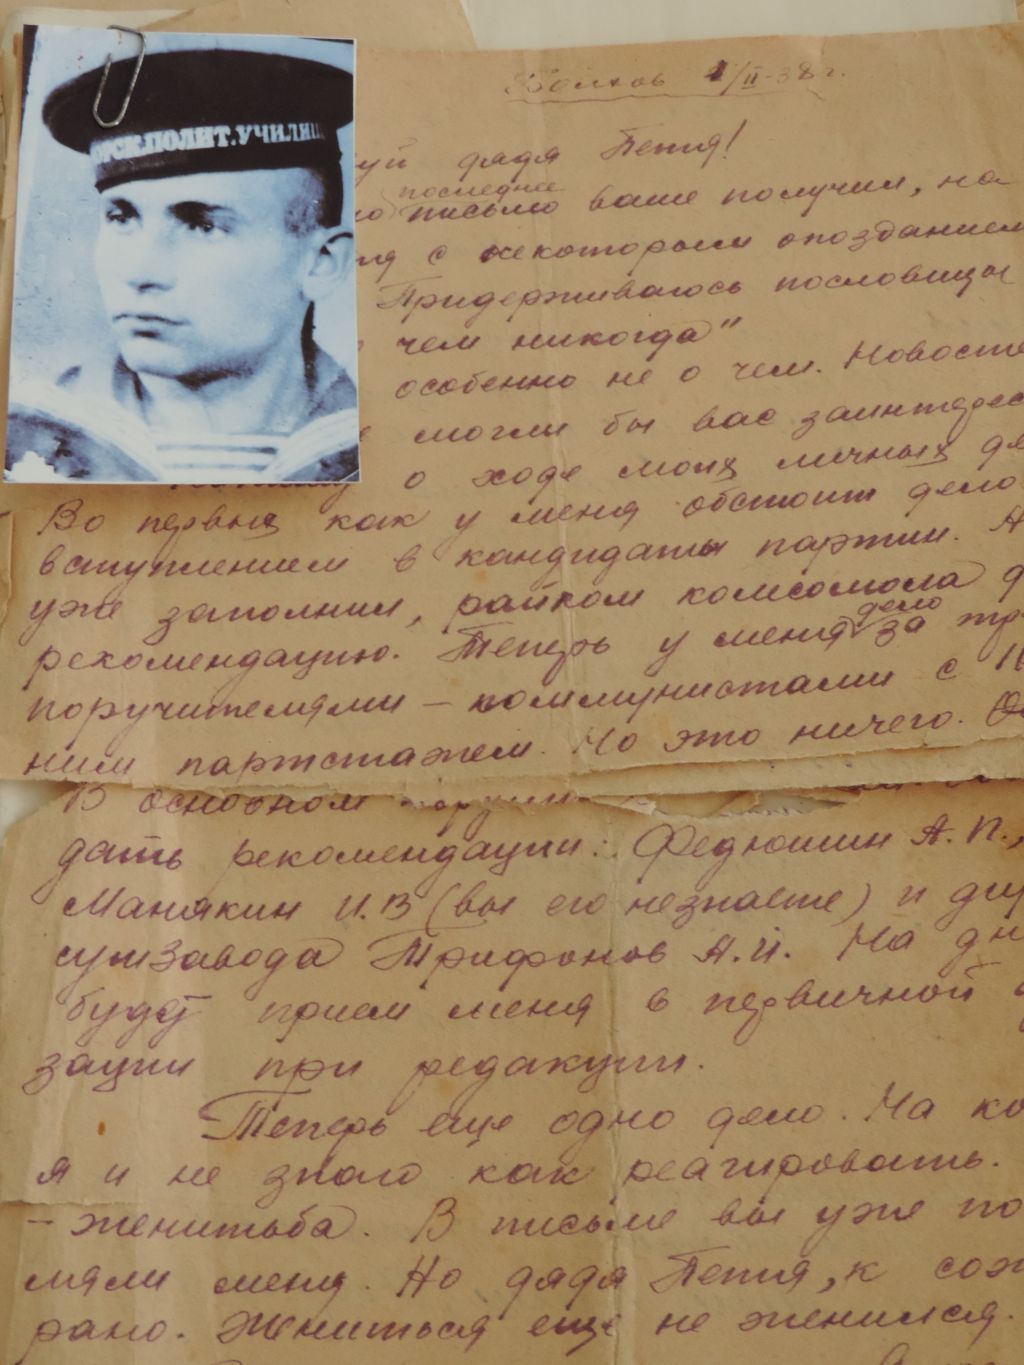 Волхов 1/II-38 г.
ОРСК.ПОЛИТ.УЧИЛИЩ
уй дядя Петя!
последнее
но письмо ваше получил, на
тя с некоторым опозданием
Придерживаюсь пословицы
чем никогда"
особенно не о чем. Новосте
е могли бы вас заинтерес
о ходе моих личных де
Во первых как у меня обстоит дело
вступлением в кандидаты партии. А
уже заполнил, райком комсомола д
дело
рекомендацию. Теперь у меня за тр
поручителями – коммунистами с
ним партстажем. Но это ничего. Ос
В основном
дать рекомендации: Федюшин А.П.,
Манякин И.В (вы его незнаете) и дир
сушзавода Трифонов А.И. На дн
будут прием меня в первичной о
зации при редакции.
Теперь еще одно дело. На ко
я и не знаю как реагировать.
– женитьба. В письме вы уже по
мяли меня. Но дядя Петя, к сож
рано. Жениться еще не женился.